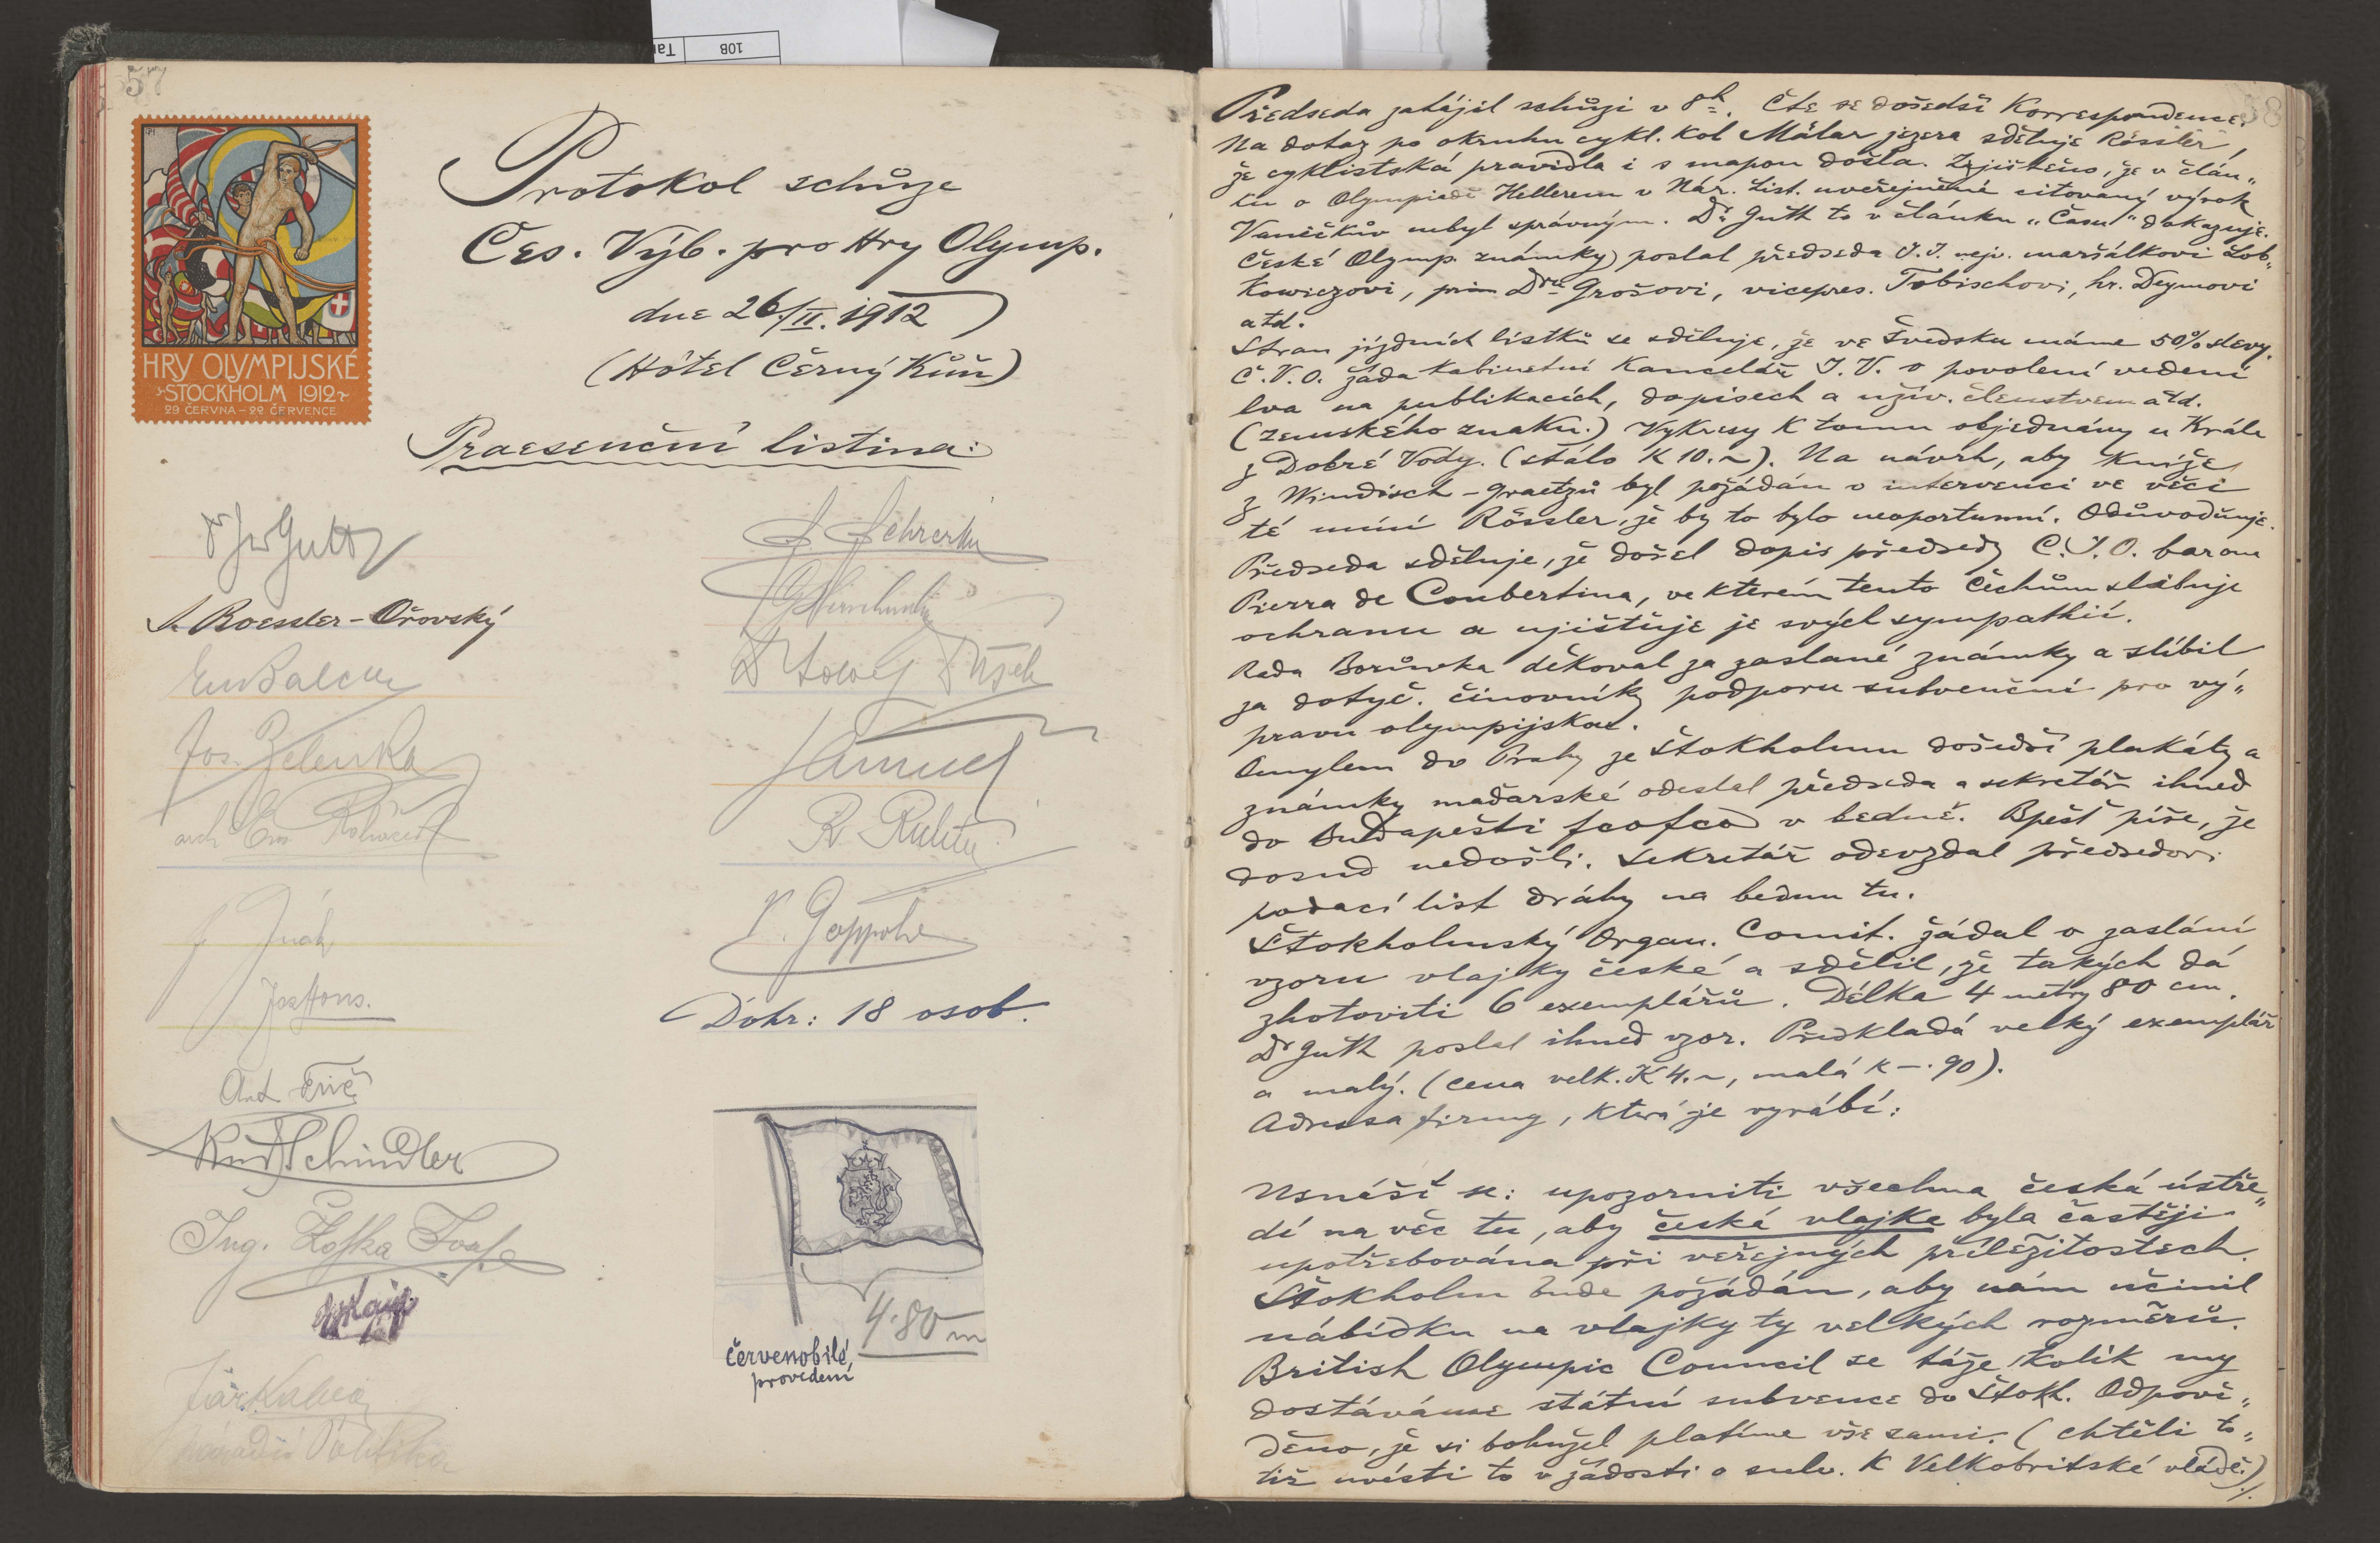 108
57
HRY OLYMPIJSKÉ
STOCKHOLM 1912
29 ČERVNA – 22 ČERVENCE
Protokol schůze
Čes. Výb. pro Hry Olymp.
dne 26./II. 1912
(Hôtel Černý Kůň)
Praesenční listina:
Dr Jiř Guth
J. Roessler-Ořovský
Em Balcar
Jos. Zelenka
arch
Jos
Ant.
Rud Schindler
Ing. Žofka
Národní Politika
Dohr: 18 osob.
4·80 m
červenobílé
provedení
58
Předseda zahájil schůzi v 8h. Čte se došedší Korrespondence.
Na dotaz po okruhu cykl. kol Mälar jezera sděluje Rössler,
že cyklistská pravidla i s mapou došla. Zjištěno, že v člán„
ku o Olympiadě Hellerem v Nár. List. uveřejněné citovaný výrok
Vaníčkův nebyl správným. Dr. Guth to v článku „Času“ dokazuje.
České Olymp. známky poslal předseda J. J. nejv. maršálkovi Lob„
kowiczovi, Dru Grošovi, vicepres. Tobischovi, hr. Deymovi
atd.
Stran jízdních lístků se sděluje, že ve Švedsku máme 50% slevy.
Č. V. O. žádá kabinetní Kancelář J. V. o povolení vedení
lva na publikacích, dopisech a užív. členstvem atd.
(zemského znaku.) Výkresy k tomu objednány u Krále
z Dobré Vody. (stálo K 10.~). Na návrh, aby Kníže
z Windisch-Graetzů byl požádán o intervenci ve věci
té míní Rössler, že by to bylo neoportunní. Odůvodňuje.
Předseda sděluje, že došel dopis předsedy C. J. O. barona
Pierra de Coubertina, ve kterém tento Čechům slibuje
ochranu a ujišťuje je svých sympathií.
Rada Borůvka děkoval za zaslané známky a slíbil
za dotyč. činovníky podporu subvenční pro vý„
pravu olympijskou.
Omylem do Prahy ze Štokholmu došedší plakáty a
známky maďarské odeslal předseda a sekretář ihned
do Budapešti v bedně. Bpešť píše, že
dosud nedošli. Sekretář odevzdal předsedovi
podací list dráhy na bednu tu.
Štokholmský Organ. Comit. žádal o zaslání
vzoru vlajky české a sdělil, že takých dá
zhotoviti 6 exemplářů. Délka 4 metry 80 cm.
Dr Guth poslal ihned vzor. Předkládá velký exemplář
a malý. (cena velk. K 4.~, malá K –.90).
Adressa firmy, která je vyrábí:
Usnáší se: upozorniti všechna česká ústře„
dí na věc tu, aby česká vlajka byla častěji
upotřebována při veřejných příležitostech.
Štokholm bude požádán, aby nám učinil
nábídku na vlajky ty velkých rozměrů.
British Olympic Council se táže kolik my
dostáváme státní subvence do Štokh. Odpově„
děno, že si bohužel platíme vše sami. (chtěli to„
tiž uvésti to v žádosti o subv. K Velkobritské vládě.)
./.